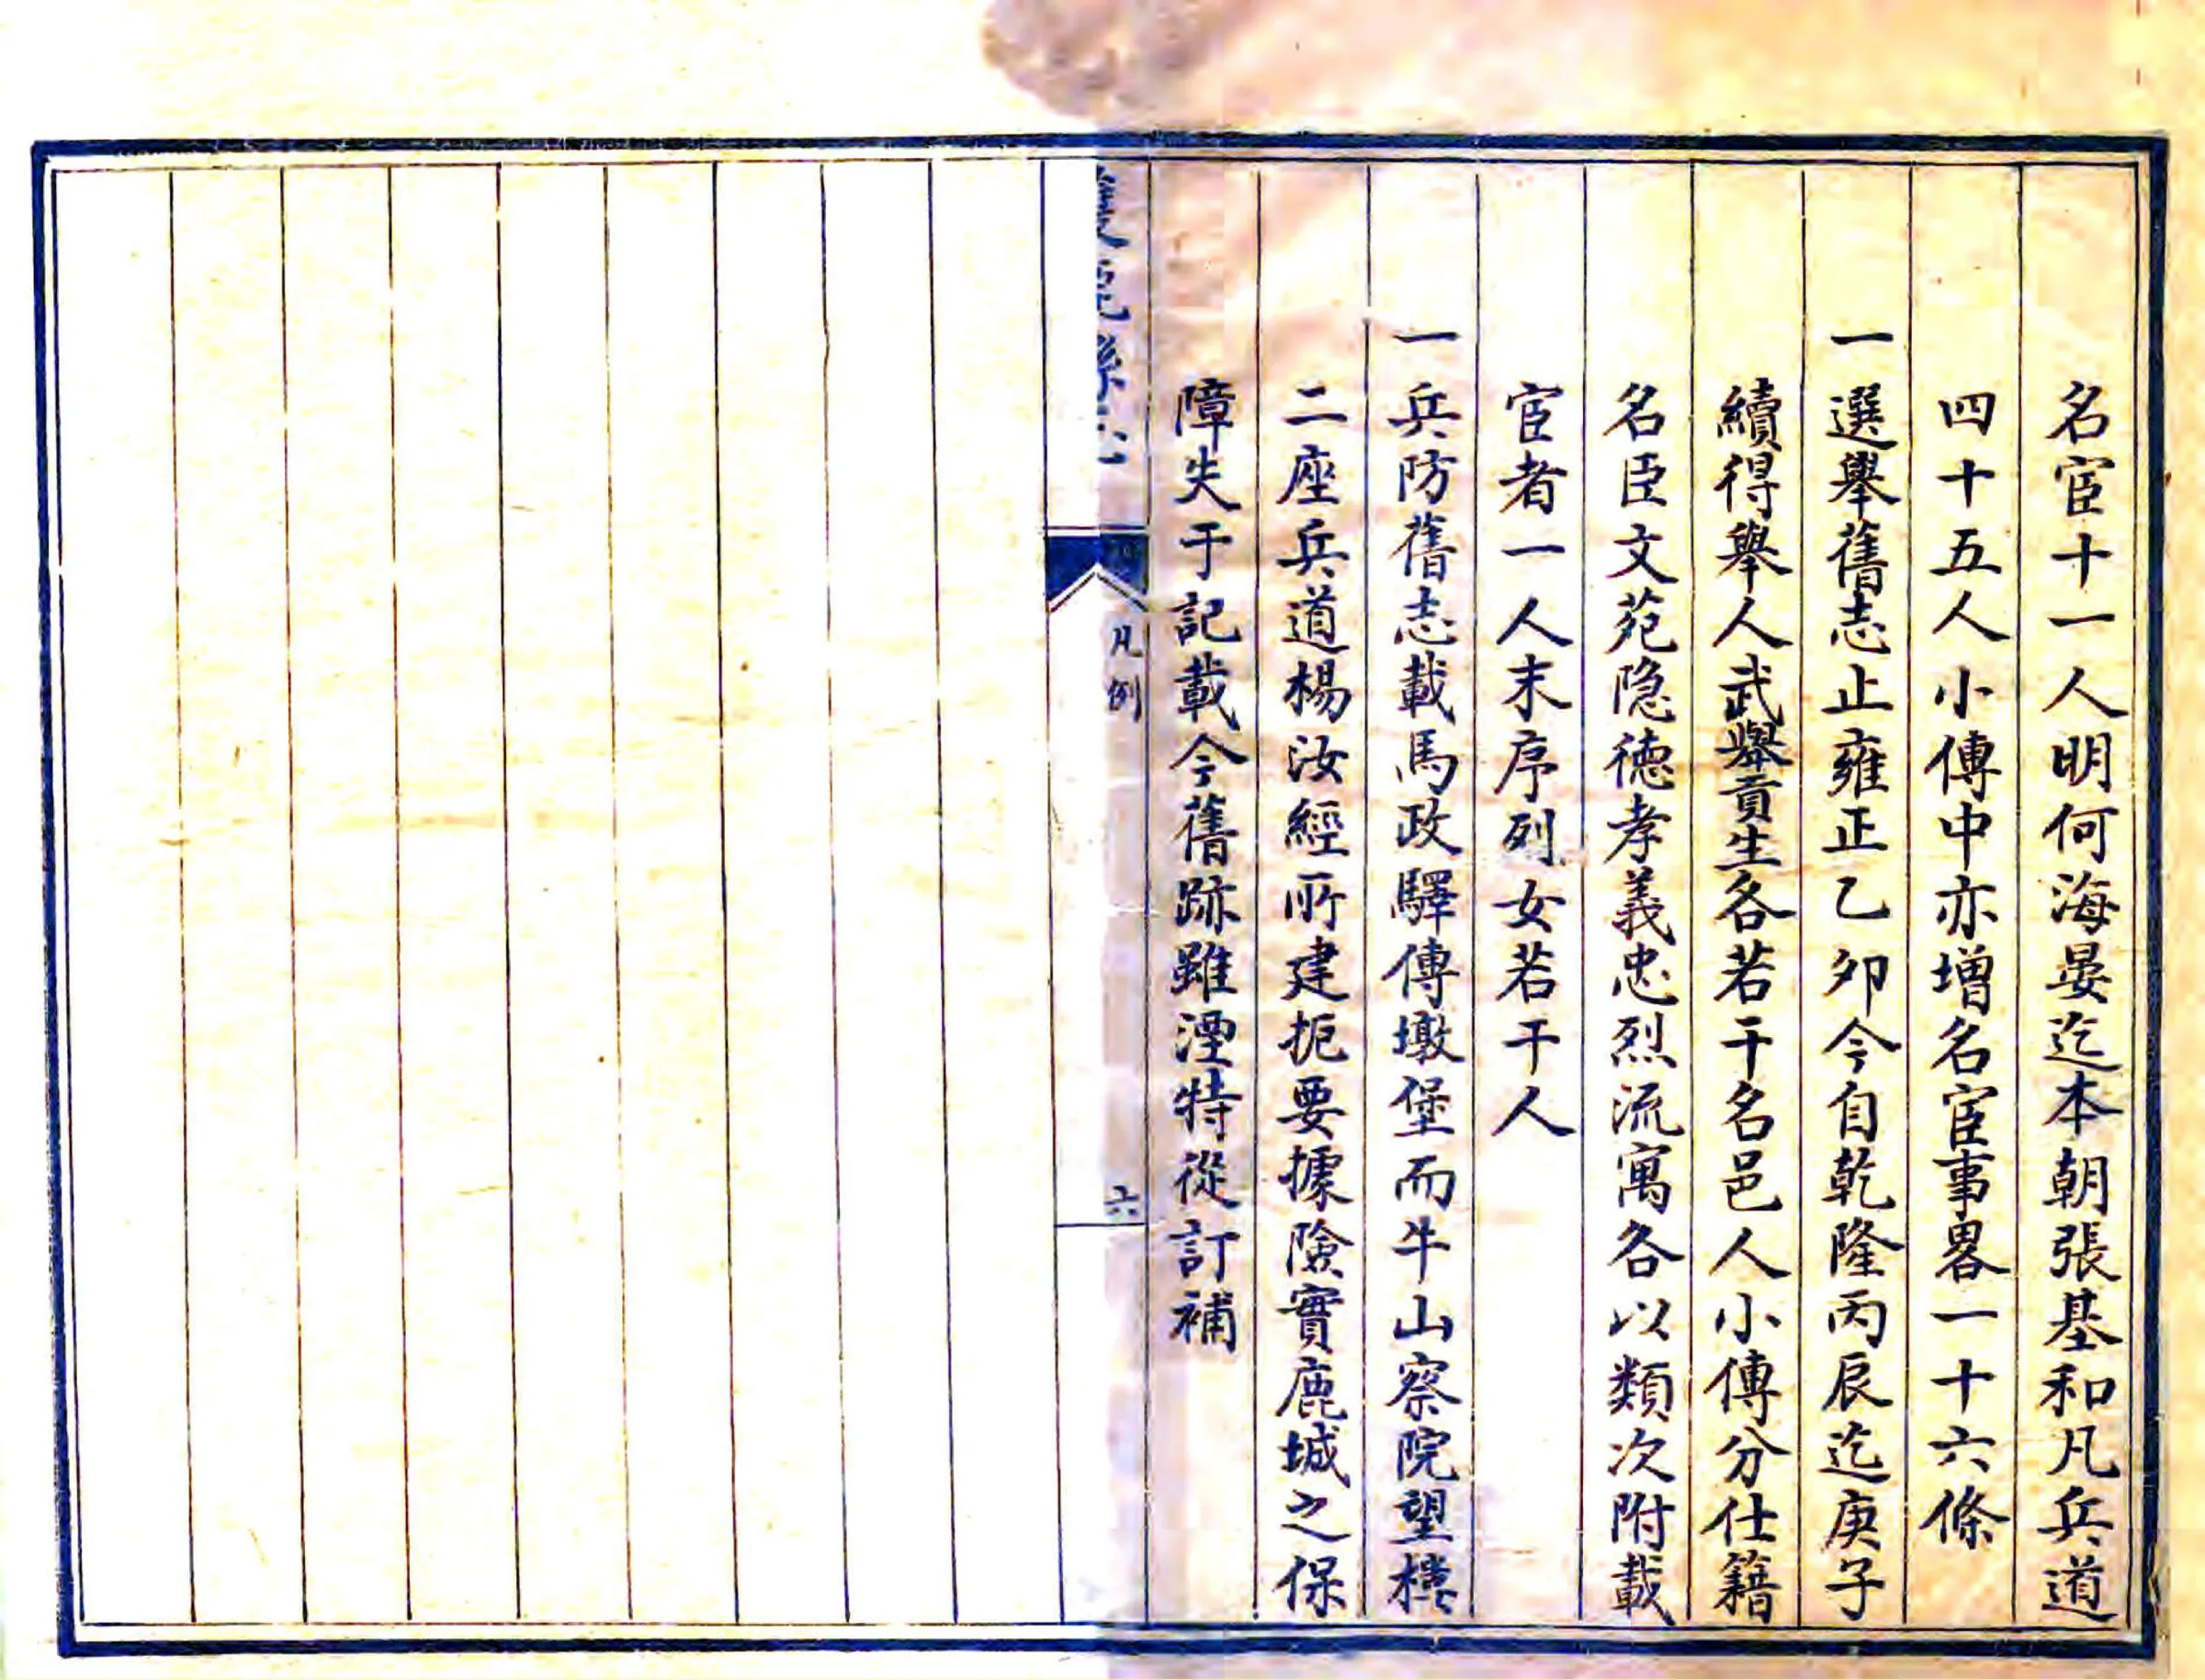 名宦十一人明何海晏迄本朝張基和凡兵道
四十五人小傳中亦增名宦事畧一十六條
一選舉舊志止雍正乙夘今自乾隆丙辰迄庚子
續得舉人武舉貢生各若干名邑人小傳分仕籍
名臣文苑隐德孝義忠烈流寓各以類次附載
宦者一人末序列女若干人
一兵防舊志載馬政驛傳墩堡而牛山察院望樓
二座兵道楊汝經所建扼要據險實鹿城之保
障失于記載今舊跡雖湮特從訂補
凡例
六